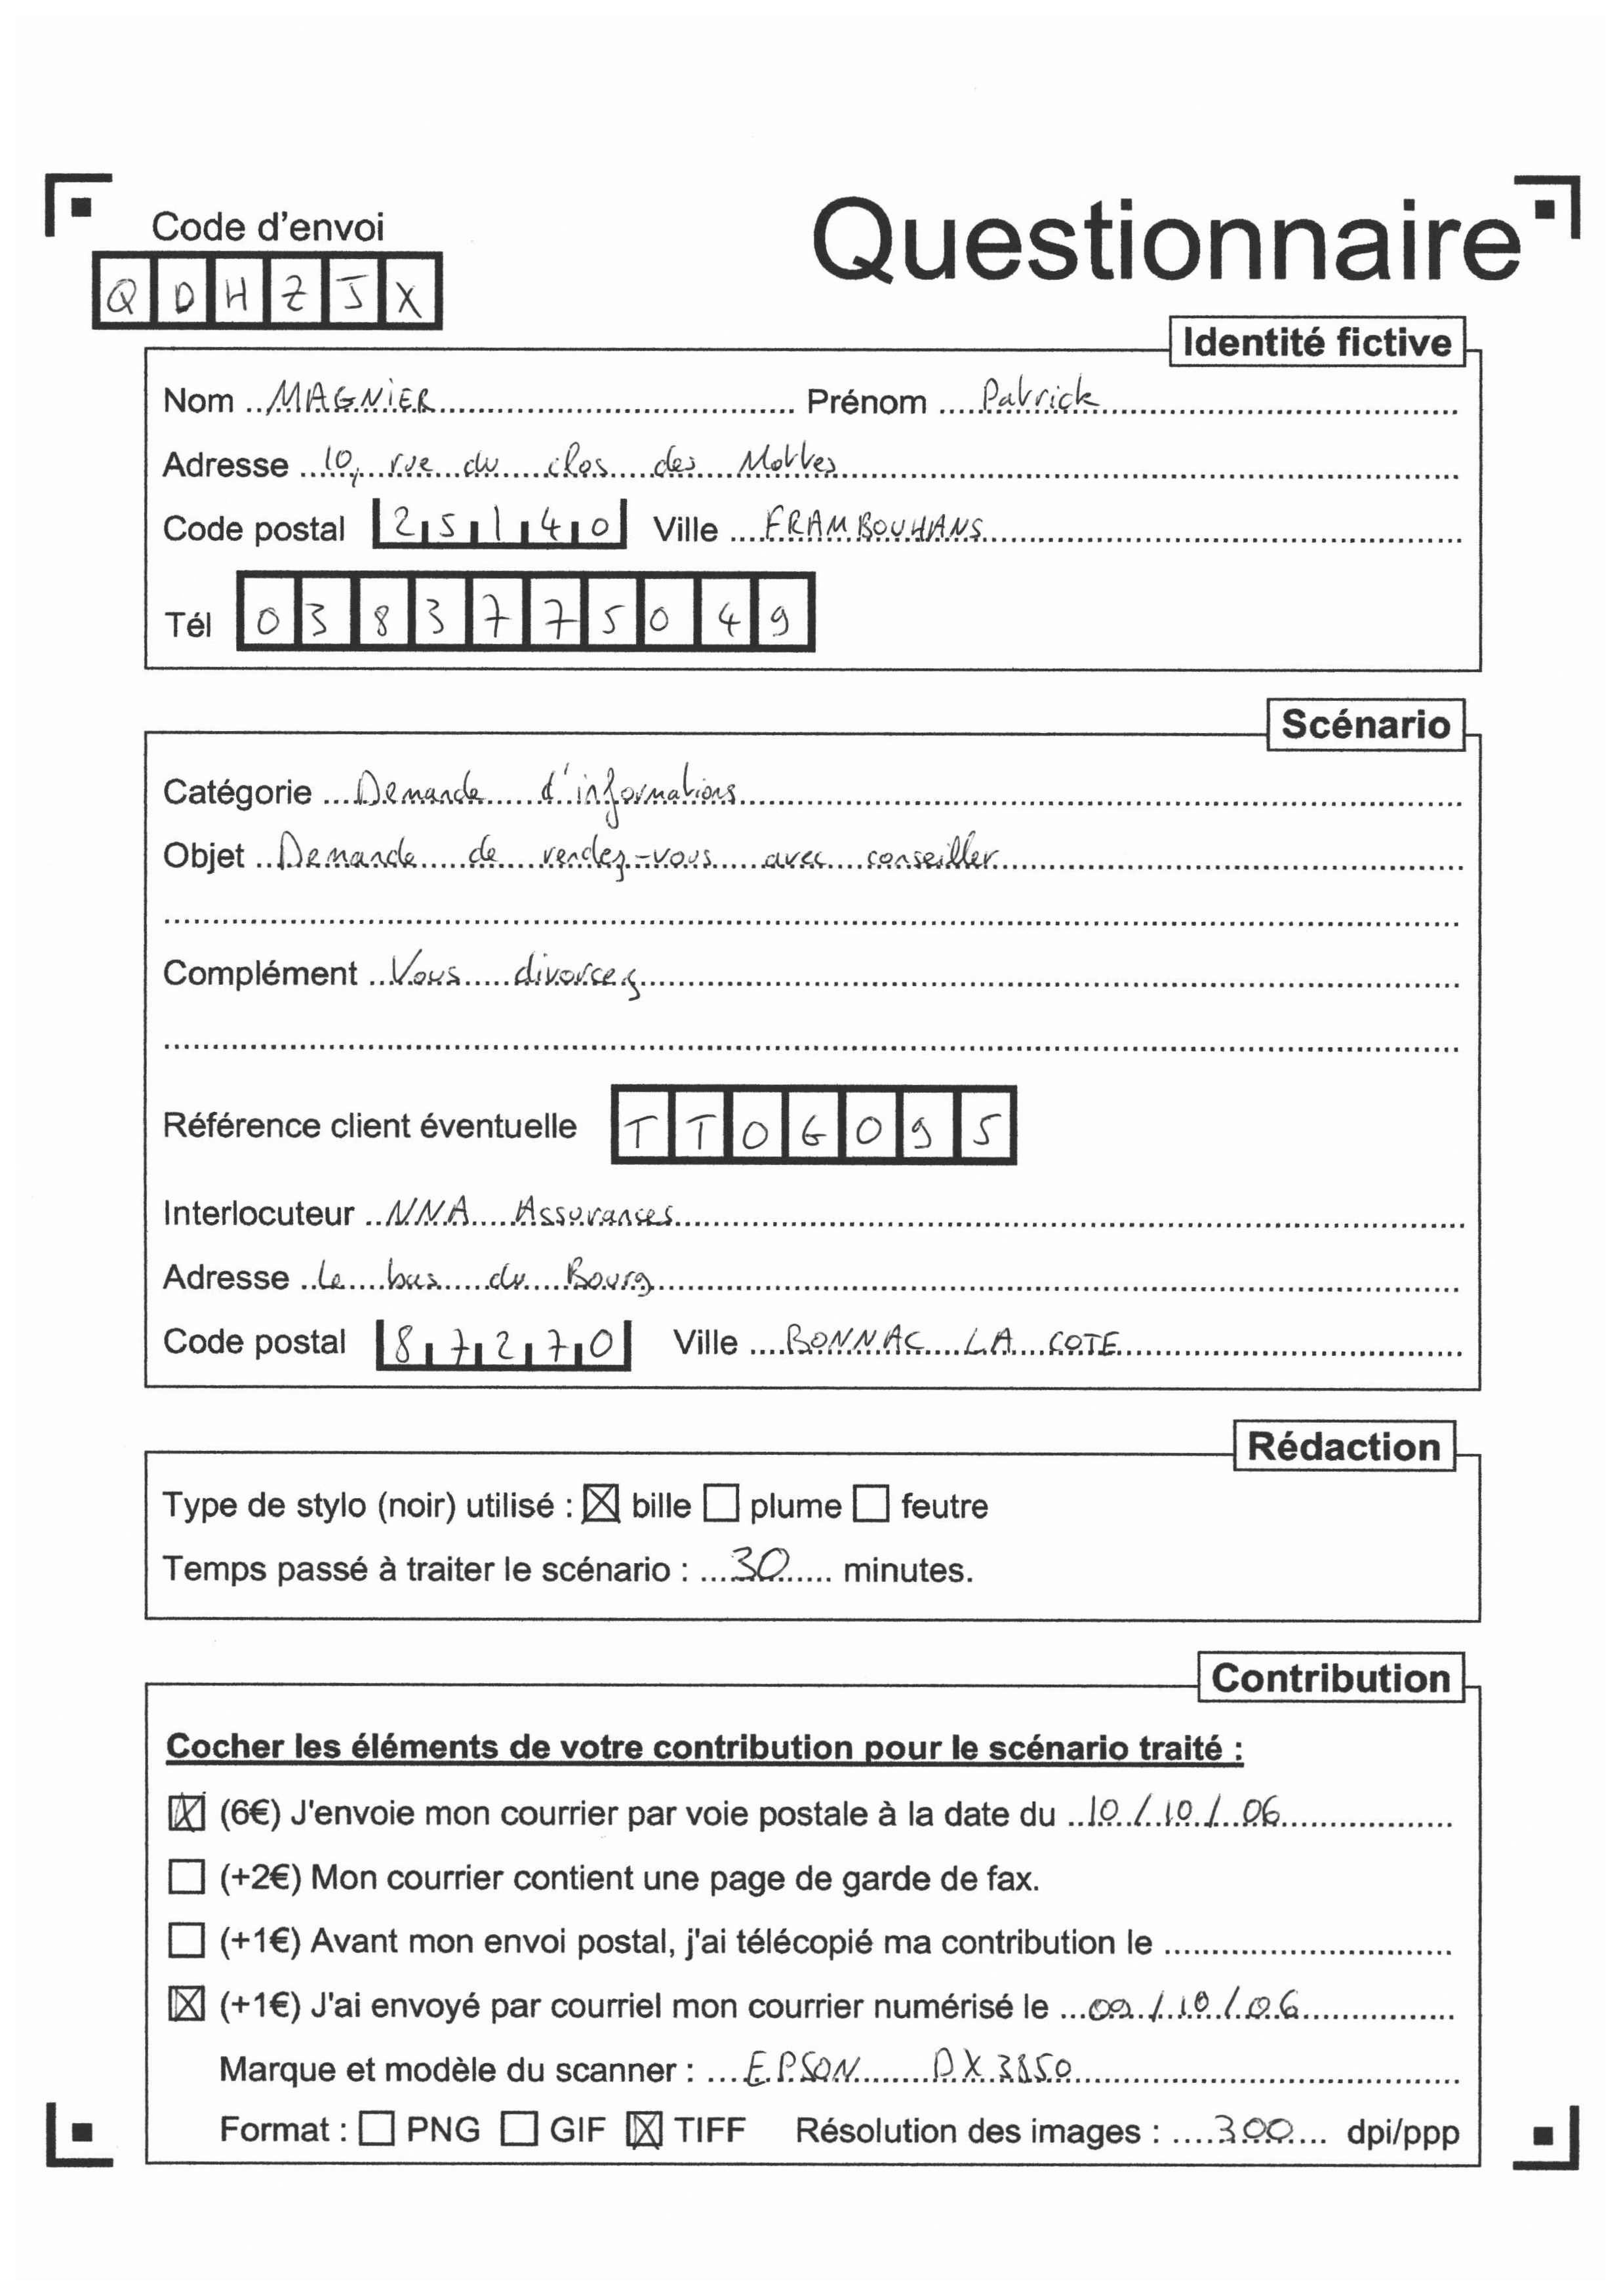 Code d'envoi
Questionnaire
Q D H Z J X
Identité fictive
Nom MAGNIER Prénom Patrick
Adresse 10, rue du clos des Mottes
Code postal 25140 Ville FRAMBOUHANS
Tél 0383775049
Scénario
Catégorie Demande d'informations
Objet Demande de rendez-vous avec conseiller
Complément Vous divorcez
Référence client éventuelle TTOG095
Interlocuteur NNA Assurances
Adresse Le bas du Bourg
Code postal 87270 Ville BONNAC LA COTE
Rédaction
Type de stylo (noir) utilisé : ☒ bille ☐ plume ☐ feutre
Temps passé à traiter le scénario : 30 minutes.
Contribution
Cocher les éléments de votre contribution pour le scénario traité :
☒ (6€) J'envoie mon courrier par voie postale à la date du 10/10/06
☐ (+2€) Mon courrier contient une page de garde de fax.
☐ (+1€) Avant mon envoi postal, j'ai télécopié ma contribution le
☒ (+1€) J'ai envoyé par courriel mon courrier numérisé le 09/10/06
Marque et modèle du scanner : EPSON DX3850
Format : ☐ PNG ☐ GIF ☒ TIFF Résolution des images : 300 dpi/ppp